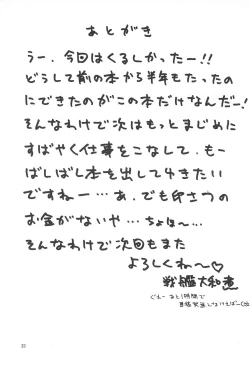 あとがき
うー、今回はくるしかったー!!
どうして前の本から半年もたったの
にできたのがこの本だけなんだー!
そんなわけで次はもっとまじめに
すばやく仕事をこなして、もー
ばしばし本を出して中きたい
ですねー…あ、でも印さつの
お金がないや…ちょほ〜…
そんなわけで次回もまた
よろしくね〜♡
戦艦大和
ぐえー あと1時間で